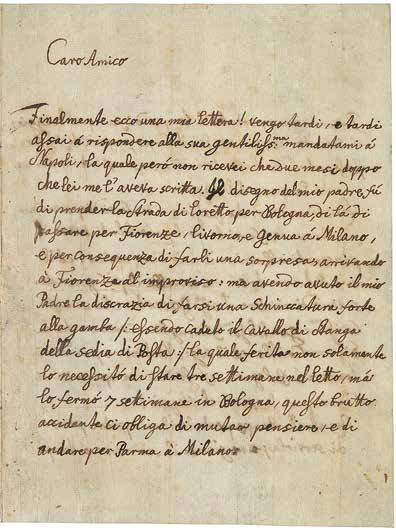 Caro Amico
Finalmente ecco una mia lettera! vengo tardi, e tardi
assai á rispondere alla sua gentiliss:ma mandatami á
Napoli, la quale peró non ricevei che due mesi doppo
che lei me l'aveva scritta. Il disegno del mio padre fú
di prender la Strada di loretto per Bologna, di lá di
passare per Fiorenze, livorno, e Genua á Milano,
e per consequenza di farli una sorpresa arrivando
á Fiorenza all improviso: ma avendo avuto il mio
Padre la discrazia di farsi una Schinccatura forte
alla gamba /: essendo caduto il Cavallo di Stanga
della sedia di Posta :/ la quale ferita non solamente
lo necessitó di stare tre settimane nel letto, má
lo fermó 7 settimane in Bologna, questo brutto
accidante ci obliga di mutar pensiere, e di
andare per Parma á Milano.